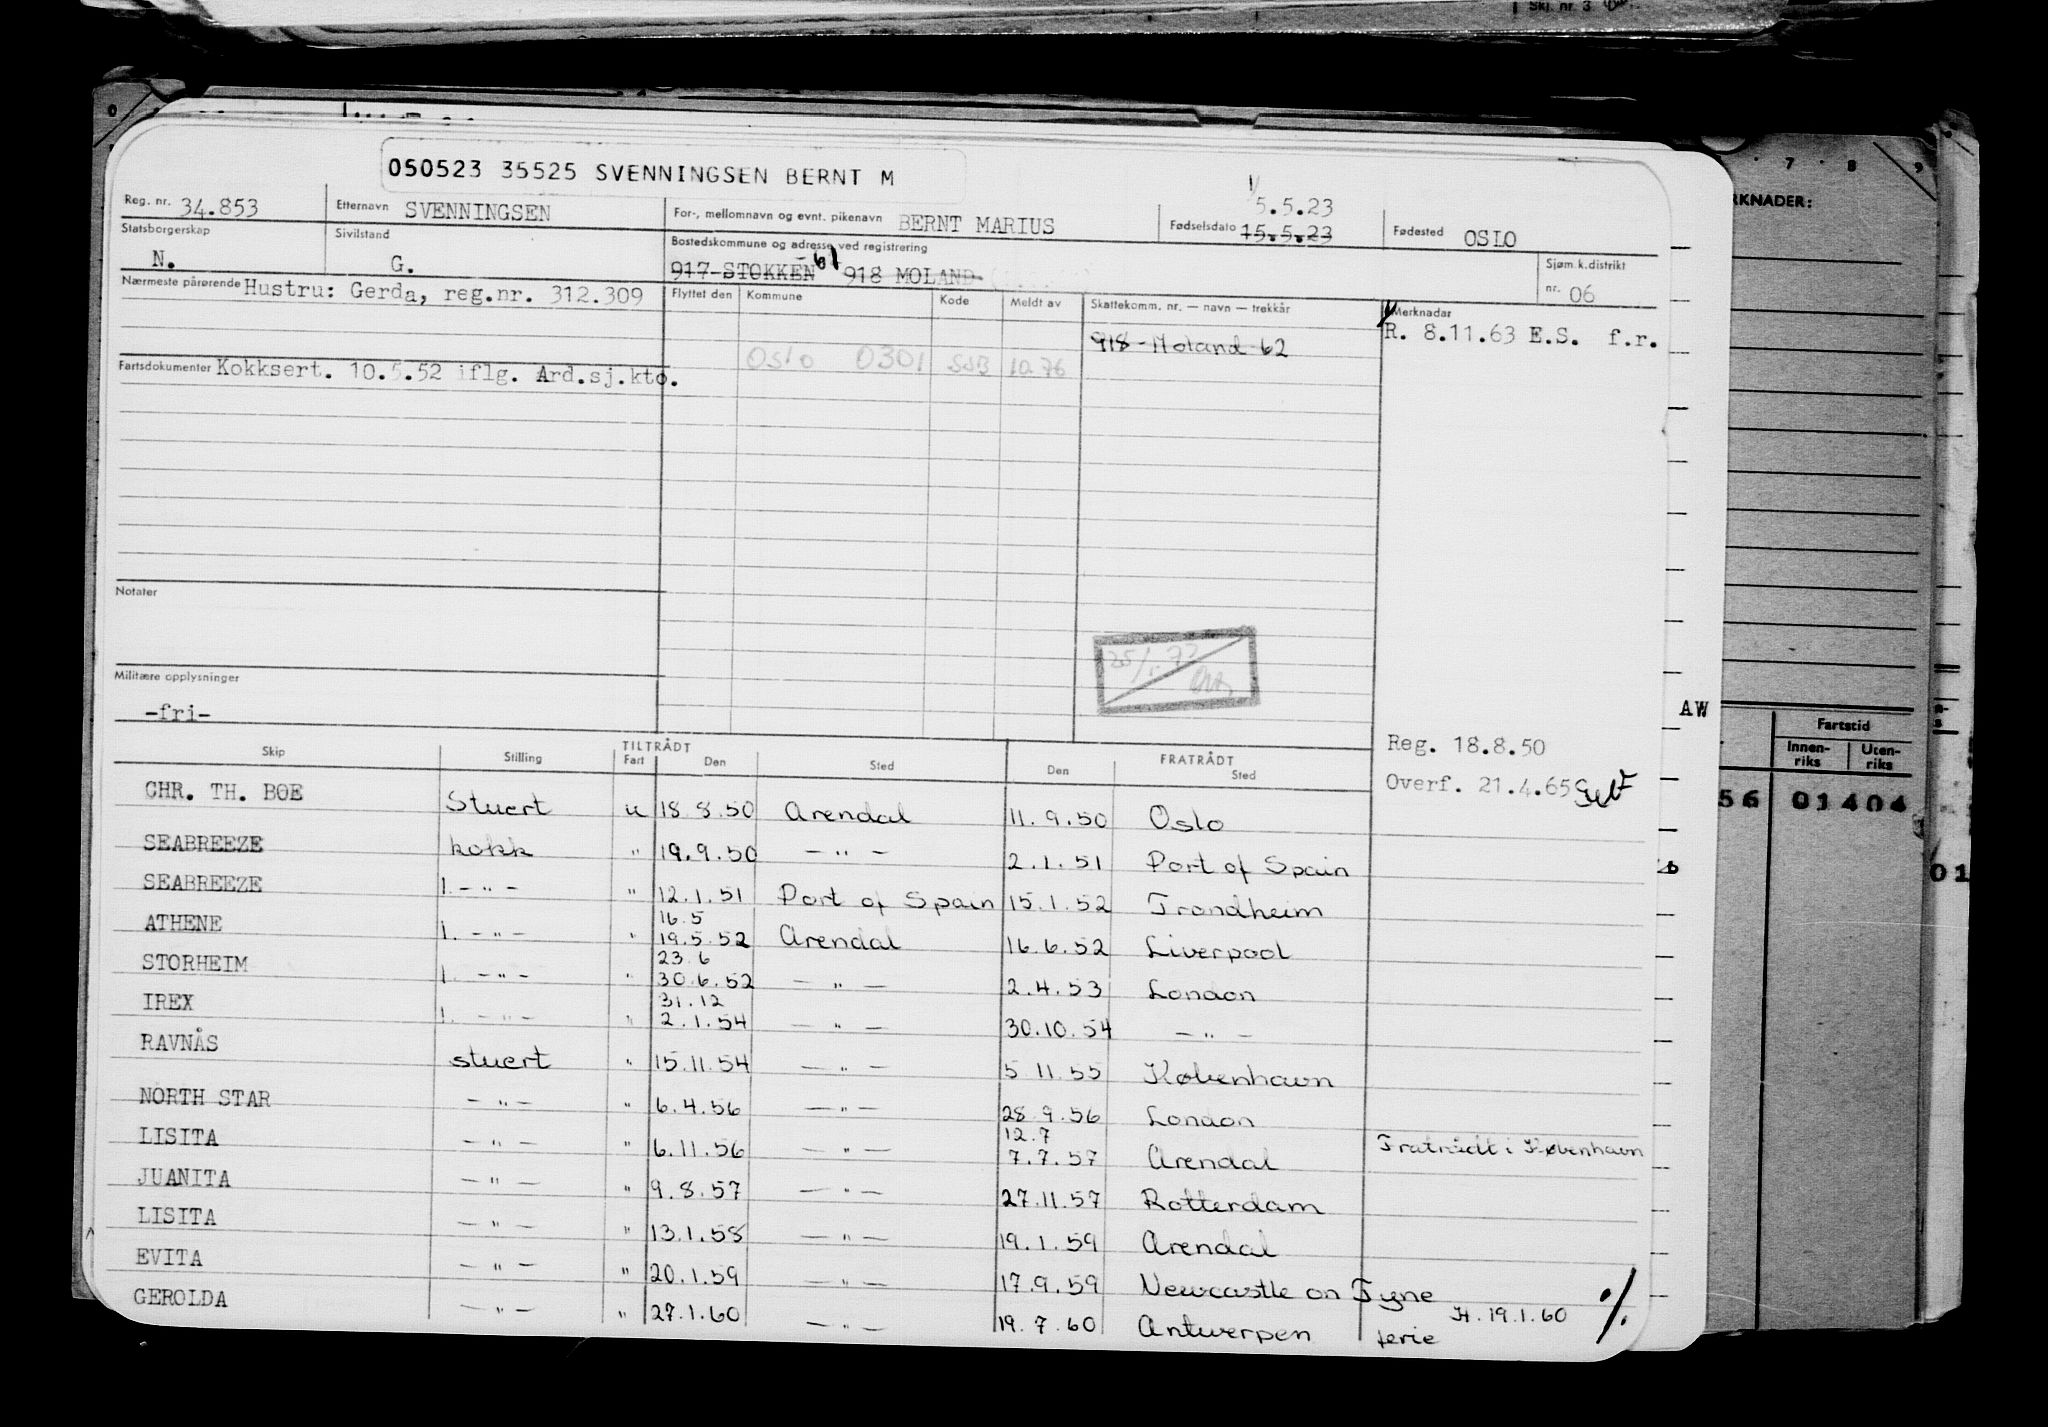 Skj. nr. 3
050523 35525 SVENNINGSEN BERNT M
Reg. nr. 34.853 Etternavn SVENNINGSEN For-, mellomnavn og evnt. pikenavn BERNT MARIUS Fødselsdato 15.5.23 5.5.23 Fødested OSLO
Statsborgerskap N. Sivilstand G. Bostedskommune og adresse ved registrering 917 STOKKEN -61 918 MOLAND Sjøm.k.distrikt nr. 06
Nærmeste pårørende Hustru: Gerda, reg.nr. 312.309 Flyttet den Kommune Kode Meldt av Skattekomm. nr. — navn — trekkår Merknadar
918-Moland 62 R. 8.11.63 E.S. f.r.
Oslo 0301 SSB 10.76
Fartsdokumenter Kokksert. 10.5.52 iflg. Ard.sj.kto.
Notater
Militære opplysninger
-fri-
Reg. 18.8.50
Overf. 21.4.65
Skip Stilling TILTRÅDT Fart Den Sted FRATRÅDT Den Sted
CHR. TH. BOE Stuert u 18.8.50 Arendal 11.9.50 Oslo
SEABREEZE kokk " 19.9.50 — " — 2.1.51 Port of Spain
SEABREEZE 1. — " — " 12.1.51 Port of Spain 15.1.52 Trondheim
ATHENE 1. — " — " 16.5 19.5.52 Arendal 16.6.52 Liverpool
STORHEIM 1. — " — " 23.6 30.6.52 — " — 2.4.53 London
IREX 1. — " — " 31.12 2.1.54 — " — 30.10.54 — " —
RAVNÅS stuert " 15.11.54 — " — 5.11.55 København
NORTH STAR — " — " 6.4.56 — " — 28.9.56 London
LISITA — " — " 6.11.56 — " — 12.7 7.7.57 Arendal Fratrådt i København
JUANITA — " — " 9.8.57 — " — 27.11.57 Rotterdam
LISITA — " — " 13.1.58 — " — 19.1.59 Arendal
EVITA — " — " 20.1.59 — " — 17.9.59 Newcastle on Tyne
GEROLDA — " — " 27.1.60 — " — 19.7.60 Antwerpen ferie H. 19.1.60
7 8 9
RKNADER:
AW
Fartstid
Innen-riks Uten-riks
56 01404
01